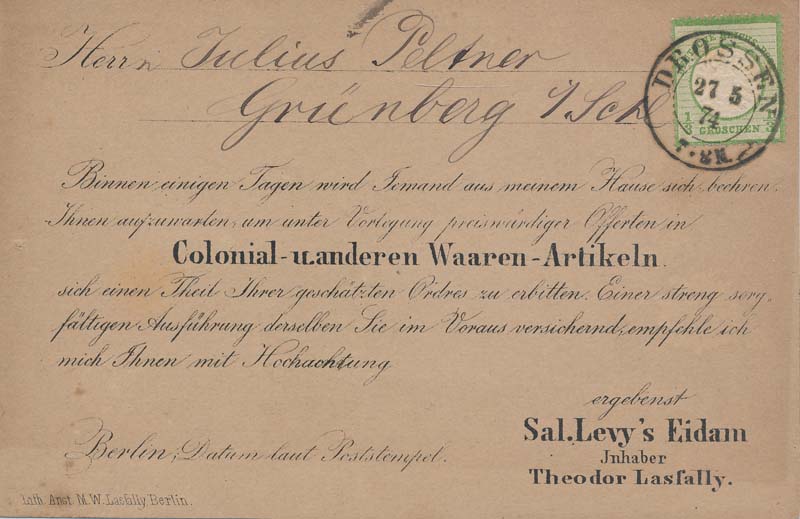 Herrn Julius Peltner
Grünberg i/Schl
DROSSEN
27 5
74
7-8N.
1/3 GROSCHEN 1/3
Binnen einigen Tagen wird Jemand aus meinem Hause sich beehren,
Ihnen aufzuwarten, um unter Vorlegung preiswürdiger Offerten in
Colonial-u.anderen Waaren-Artikeln.
sich einen Theil Ihrer geschätzten Ordres zu erbitten. Einer streng sorg-
fältigen Ausführung derselben Sie im Voraus versichernd, empfehle ich
mich Ihnen mit Hochachtung
ergebenst
Sal. Levy's Eidam
Jnhaber
Theodor Lasfally.
Berlin, Datum laut Poststempel.
Lith. Anst. M.W. Lasfally Berlin.